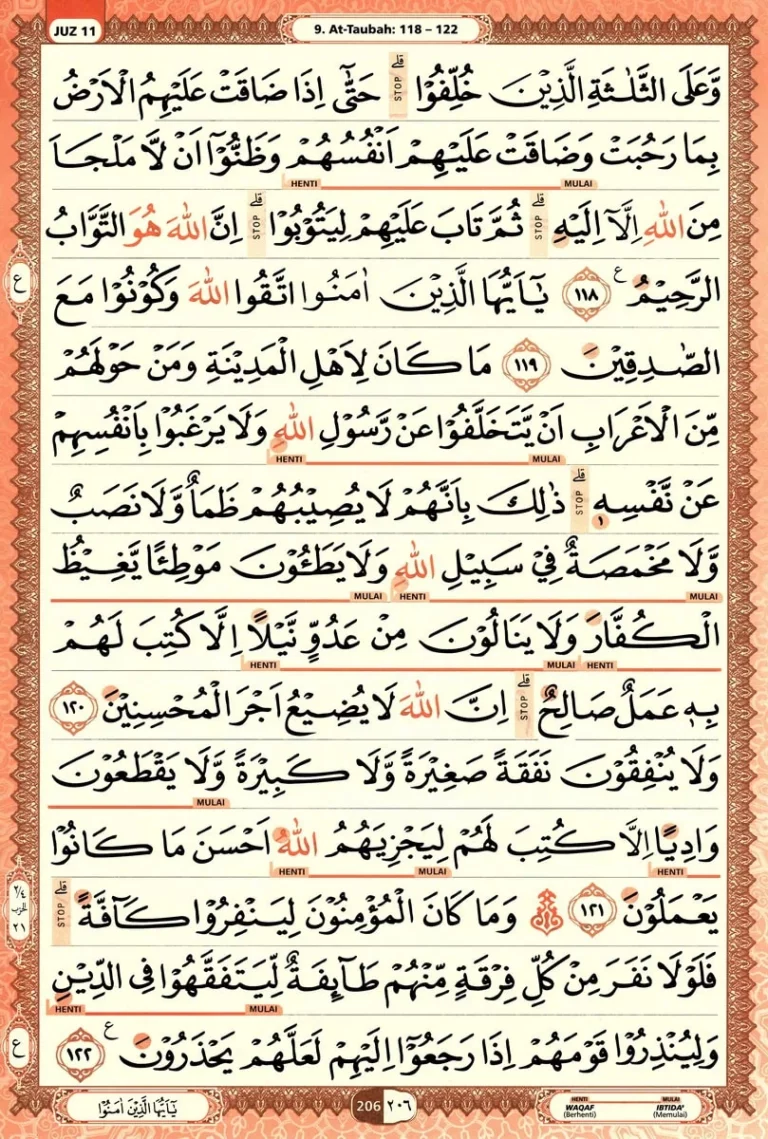 JUZ 11
9. At-Taubah: 118 – 122
وَّعَلَى الثَّلٰثَةِ الَّذِيْنَ خُلِّفُوْا ۗ حَتّٰٓى اِذَا ضَاقَتْ عَلَيْهِمُ الْاَرْضُ
STOP
بِمَا رَحُبَتْ وَضَاقَتْ عَلَيْهِمْ اَنْفُسُهُمْ وَظَنُّوْٓا اَنْ لَّا مَلْجَاَ
HENTI MULAI
مِنَ اللّٰهِ اِلَّآ اِلَيْهِ ۗ ثُمَّ تَابَ عَلَيْهِمْ لِيَتُوْبُوْا ۗ اِنَّ اللّٰهَ هُوَ التَّوَّابُ
STOP STOP
الرَّحِيْمُ ࣖ ١١٨ يٰٓاَيُّهَا الَّذِيْنَ اٰمَنُوا اتَّقُوا اللّٰهَ وَكُوْنُوْا مَعَ
ع
الصّٰدِقِيْنَ ١١٩ مَا كَانَ لِاَهْلِ الْمَدِيْنَةِ وَمَنْ حَوْلَهُمْ
مِّنَ الْاَعْرَابِ اَنْ يَّتَخَلَّفُوْا عَنْ رَّسُوْلِ اللّٰهِ وَلَا يَرْغَبُوْا بِاَنْفُسِهِمْ
HENTI MULAI
عَنْ نَّفْسِهٖ ۗ ذٰلِكَ بِاَنَّهُمْ لَا يُصِيْبُهُمْ ظَمَاٌ وَّلَا نَصَبٌ
١ STOP
وَّلَا مَخْمَصَةٌ فِيْ سَبِيْلِ اللّٰهِ وَلَا يَطَـُٔوْنَ مَوْطِئًا يَّغِيْظُ
MULAI HENTI MULAI
الْكُفَّارَ وَلَا يَنَالُوْنَ مِنْ عَدُوٍّ نَّيْلًا اِلَّا كُتِبَ لَهُمْ
HENTI MULAI HENTI
بِهٖ عَمَلٌ صَالِحٌ ۗ اِنَّ اللّٰهَ لَا يُضِيْعُ اَجْرَ الْمُحْسِنِيْنَ ١٢٠
STOP
وَلَا يُنْفِقُوْنَ نَفَقَةً صَغِيْرَةً وَّلَا كَبِيْرَةً وَّلَا يَقْطَعُوْنَ
MULAI
وَادِيًا اِلَّا كُتِبَ لَهُمْ لِيَجْزِيَهُمُ اللّٰهُ اَحْسَنَ مَا كَانُوْا
HENTI MULAI HENTI
يَعْمَلُوْنَ ١٢١ ۞ وَمَا كَانَ الْمُؤْمِنُوْنَ لِيَنْفِرُوْا كَاۤفَّةً ۗ
STOP
٢/٤
الحزب
٢١
فَلَوْلَا نَفَرَ مِنْ كُلِّ فِرْقَةٍ مِّنْهُمْ طَاۤىِٕفَةٌ لِّيَتَفَقَّهُوْا فِى الدِّيْنِ
HENTI MULAI
وَلِيُنْذِرُوْا قَوْمَهُمْ اِذَا رَجَعُوْٓا اِلَيْهِمْ لَعَلَّهُمْ يَحْذَرُوْنَ ࣖ ١٢٢
ع
يٰٓاَيُّهَا الَّذِيْنَ اٰمَنُوْا
206 ٢٠٦
HENTI MULAI
WAQAF IBTIDA'
(Berhenti) (Memulai)